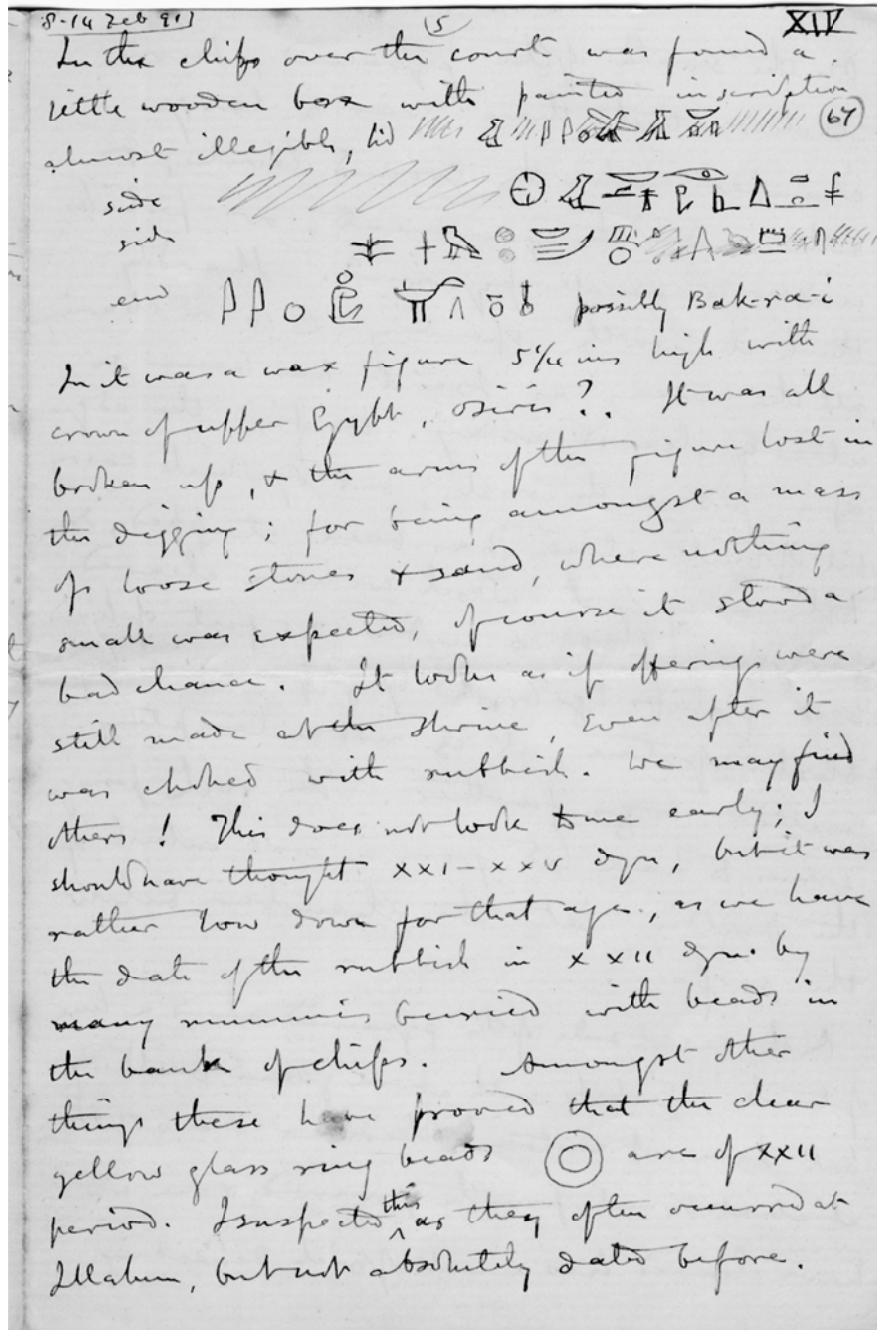 8-14 Feb 91)
5
XIV
In the chips over the court was found a
little wooden box with painted inscription
67
almost illegible, lid
side
side
end
possibly Bak-ra-i
In it was a wax figure 5¼ ins high with
crown of upper Egypt, osiris?. It was all
broken up, & the arms of the figure lost in
the digging; for being amongst a mass
of loose stones & sand, where nothing
small was expected, of course it stood a
bad chance. It looks as if offerings were
still made at the shrine, even after it
was choked with rubbish. We may find
others! This does not look to me early; I
should have thought XXI-XXV dyn, but it was
rather low down for that age, as we have
the date of the rubbish in XXII dyn. by
many mummies buried with beads in
the bank of chips. Amongst other
things these have proved that the clear
yellow glass ring beads are of XXII
period. I suspected this as they often occurred at
Illahun, but not absolutely dated before.